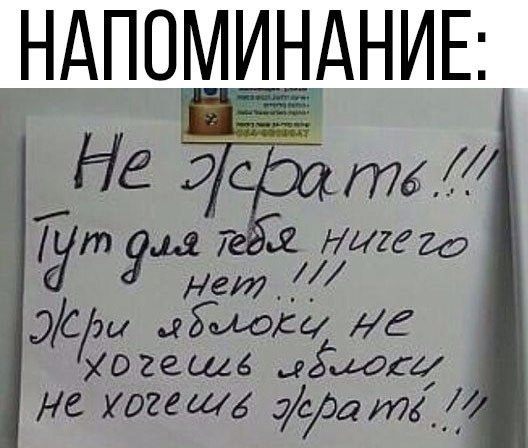 НАПОМИНАНИЕ:
Не жрать!!!
Тут для тебя ничего
нет!!!
Жри яблоки, не
хочешь яблоки,
не хочешь жрать!!!